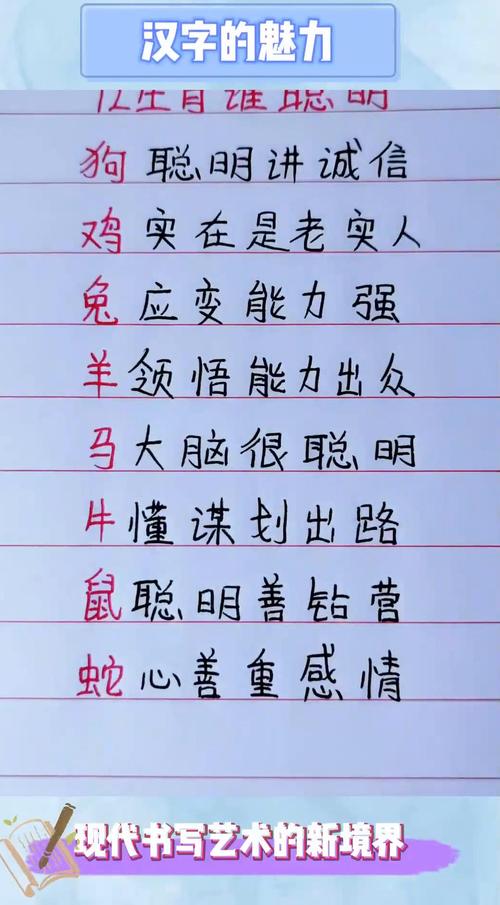 汉字的魅力
生肖谁聪明
狗聪明讲诚信
鸡实在是老实人
兔应变能力强
羊领悟能力出众
马大脑很聪明
牛懂谋划出路
鼠聪明善钻营
蛇心善重感情
现代书写艺术的新境界